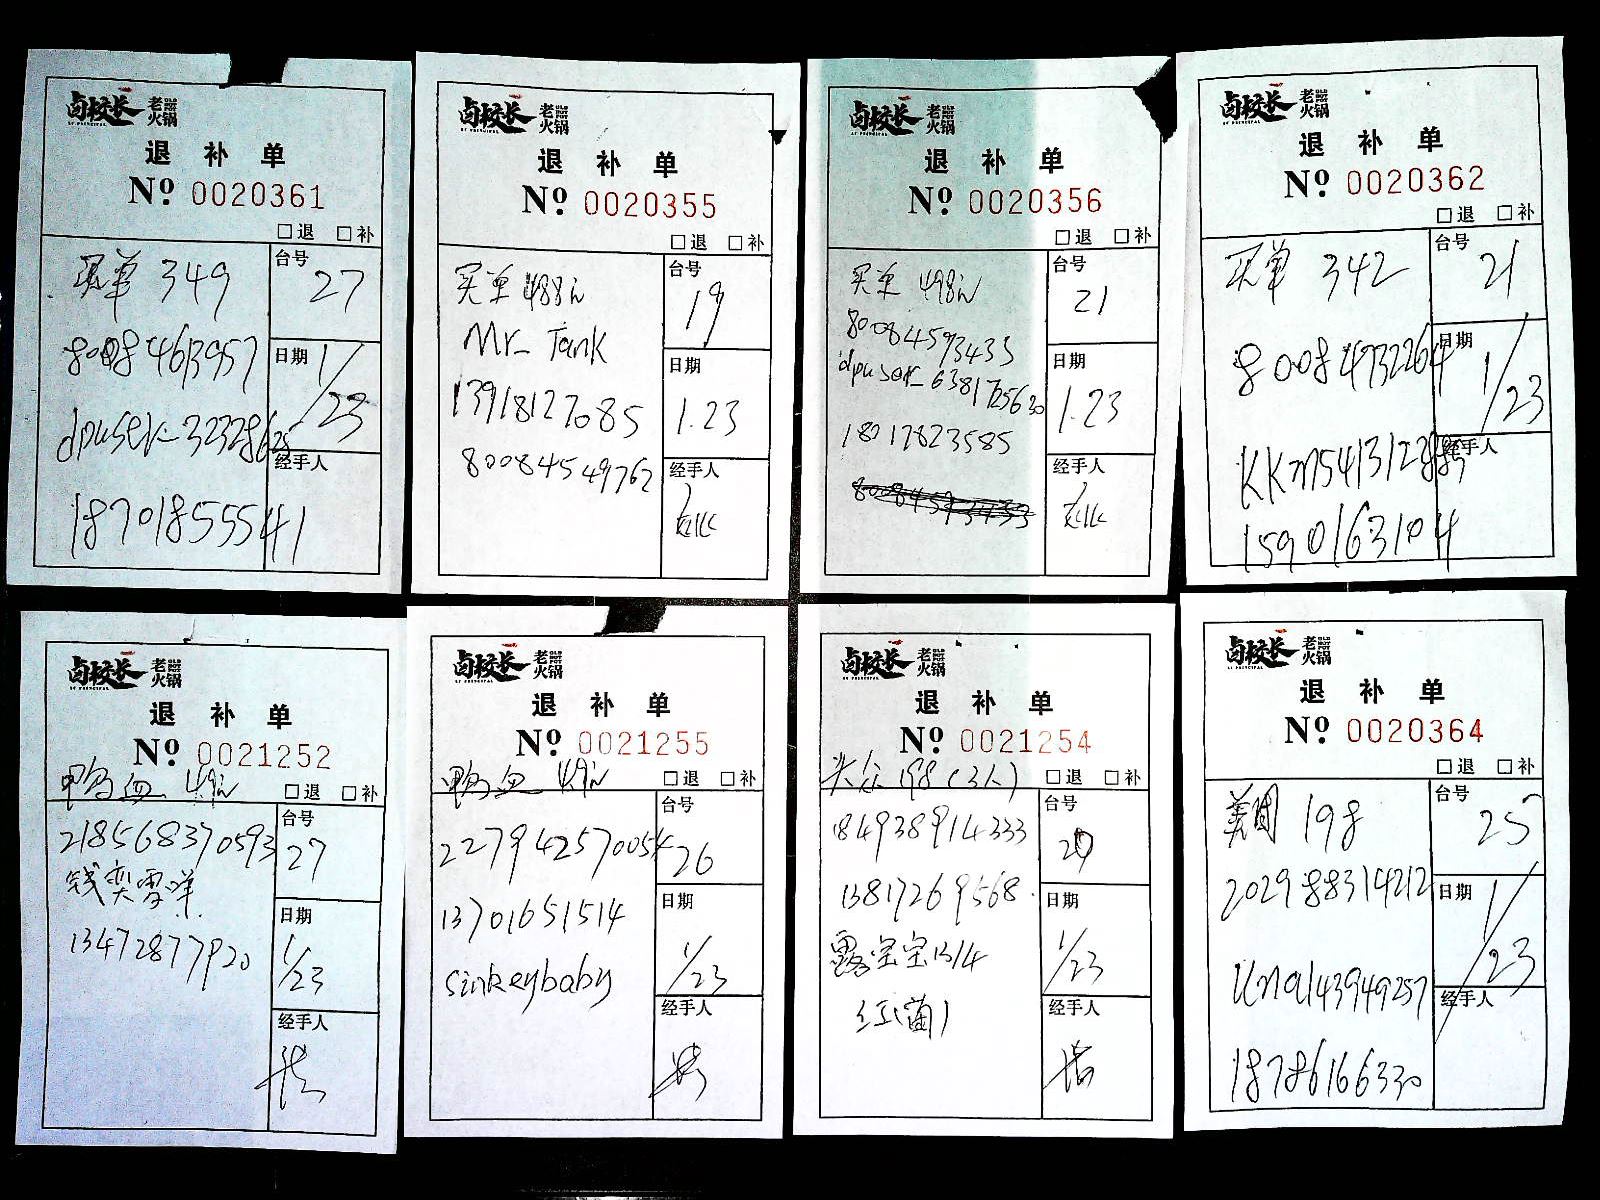 卤校长 老火锅
LU PRINCIPAL
退 补 单
Nº 0020361
□退 □补
买单 349
台号
27
80084613957
日期
1/23
dpuser-3232862
经手人
18701855541
卤校长 老火锅
LU PRINCIPAL
退 补 单
Nº 0020355
□退 □补
买单 488
台号
19
Mr_ Tank
日期
13918127085
1.23
80084549762
经手人
卤校长 老火锅
LU PRINCIPAL
退 补 单
Nº 0020356
□退 □补
买单 498
台号
21
80084593435
日期
dpuser_63817125630
1.23
18017823585
经手人
卤校长 老火锅
LU PRINCIPAL
退 补 单
Nº 0020362
□退 □补
买单 342
台号
21
80084732264
日期
1/23
经手人
15901163104
卤校长 老火锅
LU PRINCIPAL
退 补 单
Nº 0021252
鸭血 49
□退 □补
台号
27
218568370593
日期
13472877920
1/23
经手人
卤校长 老火锅
LU PRINCIPAL
退 补 单
Nº 0021255
鸭血 49
□退 □补
台号
26
227942570054
日期
13701651514
1/23
sinkeybaby
经手人
卤校长 老火锅
LU PRINCIPAL
退 补 单
Nº 0021254
大众 198 (3人)
□退 □补
台号
184938914333
日期
13817269568
1/23
露宝宝1314
经手人
卤校长 老火锅
LU PRINCIPAL
退 补 单
Nº 0020364
□退 □补
美团 198
台号
25
202988314212
日期
1/23
una143949257
经手人
18786166330